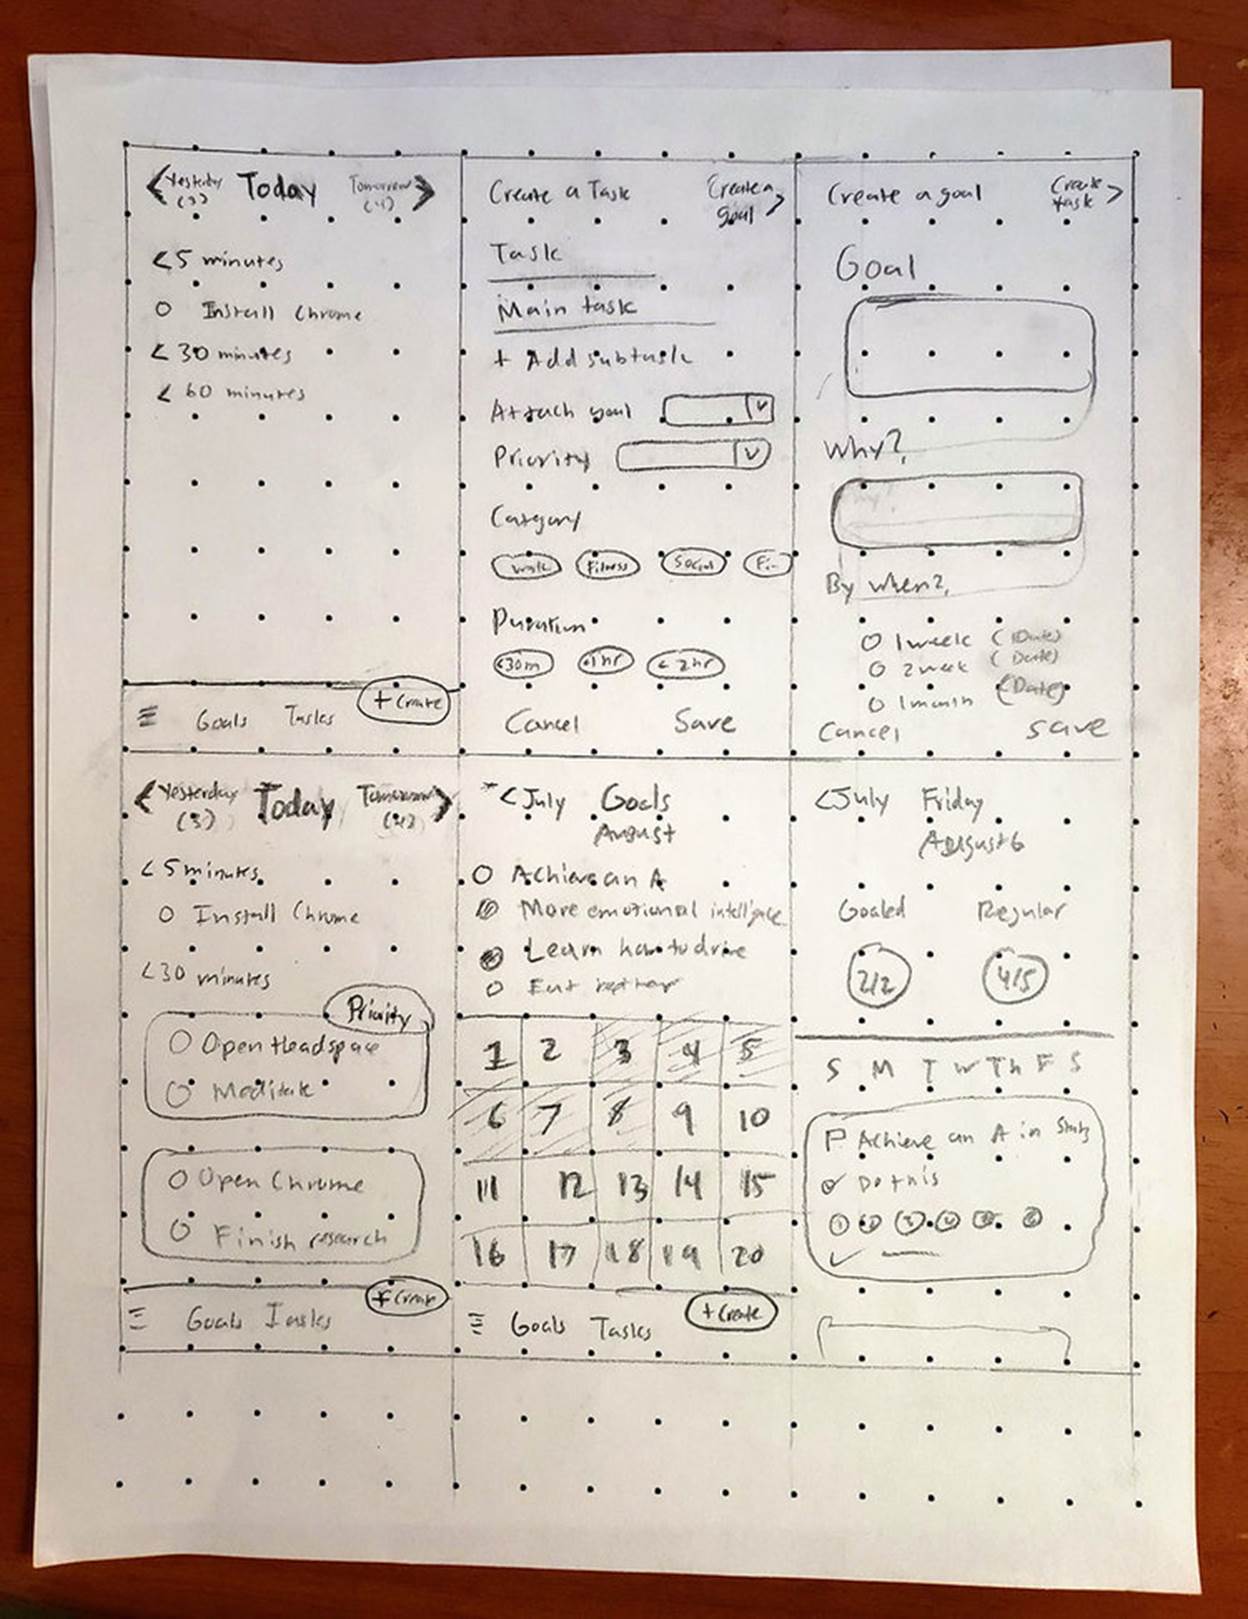 < Yesterday Today Tomorrow >
(3)
< 5 minutes
Install Chrome
< 30 minutes
< 60 minutes
Goals Tasks + Create
Create a Task Create a goal >
Task
Main task
+ Add subtask
Attach goal
Priority
Category
Work Fitness Social Fi-
Duration
<30m <1hr <2hr
Cancel Save
Create a goal Create task >
Goal
Why?
By when?
1 week (Date)
2 week (Date)
1 month (Date)
Cancel save
< Yesterday Today Tomorrow >
(3)
< 5 minutes
Install Chrome
< 30 minutes
Priority
Open Headspace
Meditate
Open Chrome
Finish research
Goals Tasks + Create
< July Goals
August
Achieve an A
More emotional intelligence
Learn how to drive
Eat
1 2 3 4 5
6 7 8 9 10
11 12 13 14 15
16 17 18 19 20
Goals Tasks + Create
< July Friday
August 6
Goaled Regular
2/2 4/5
S M T W Th F S
Achieve an A in
Do this